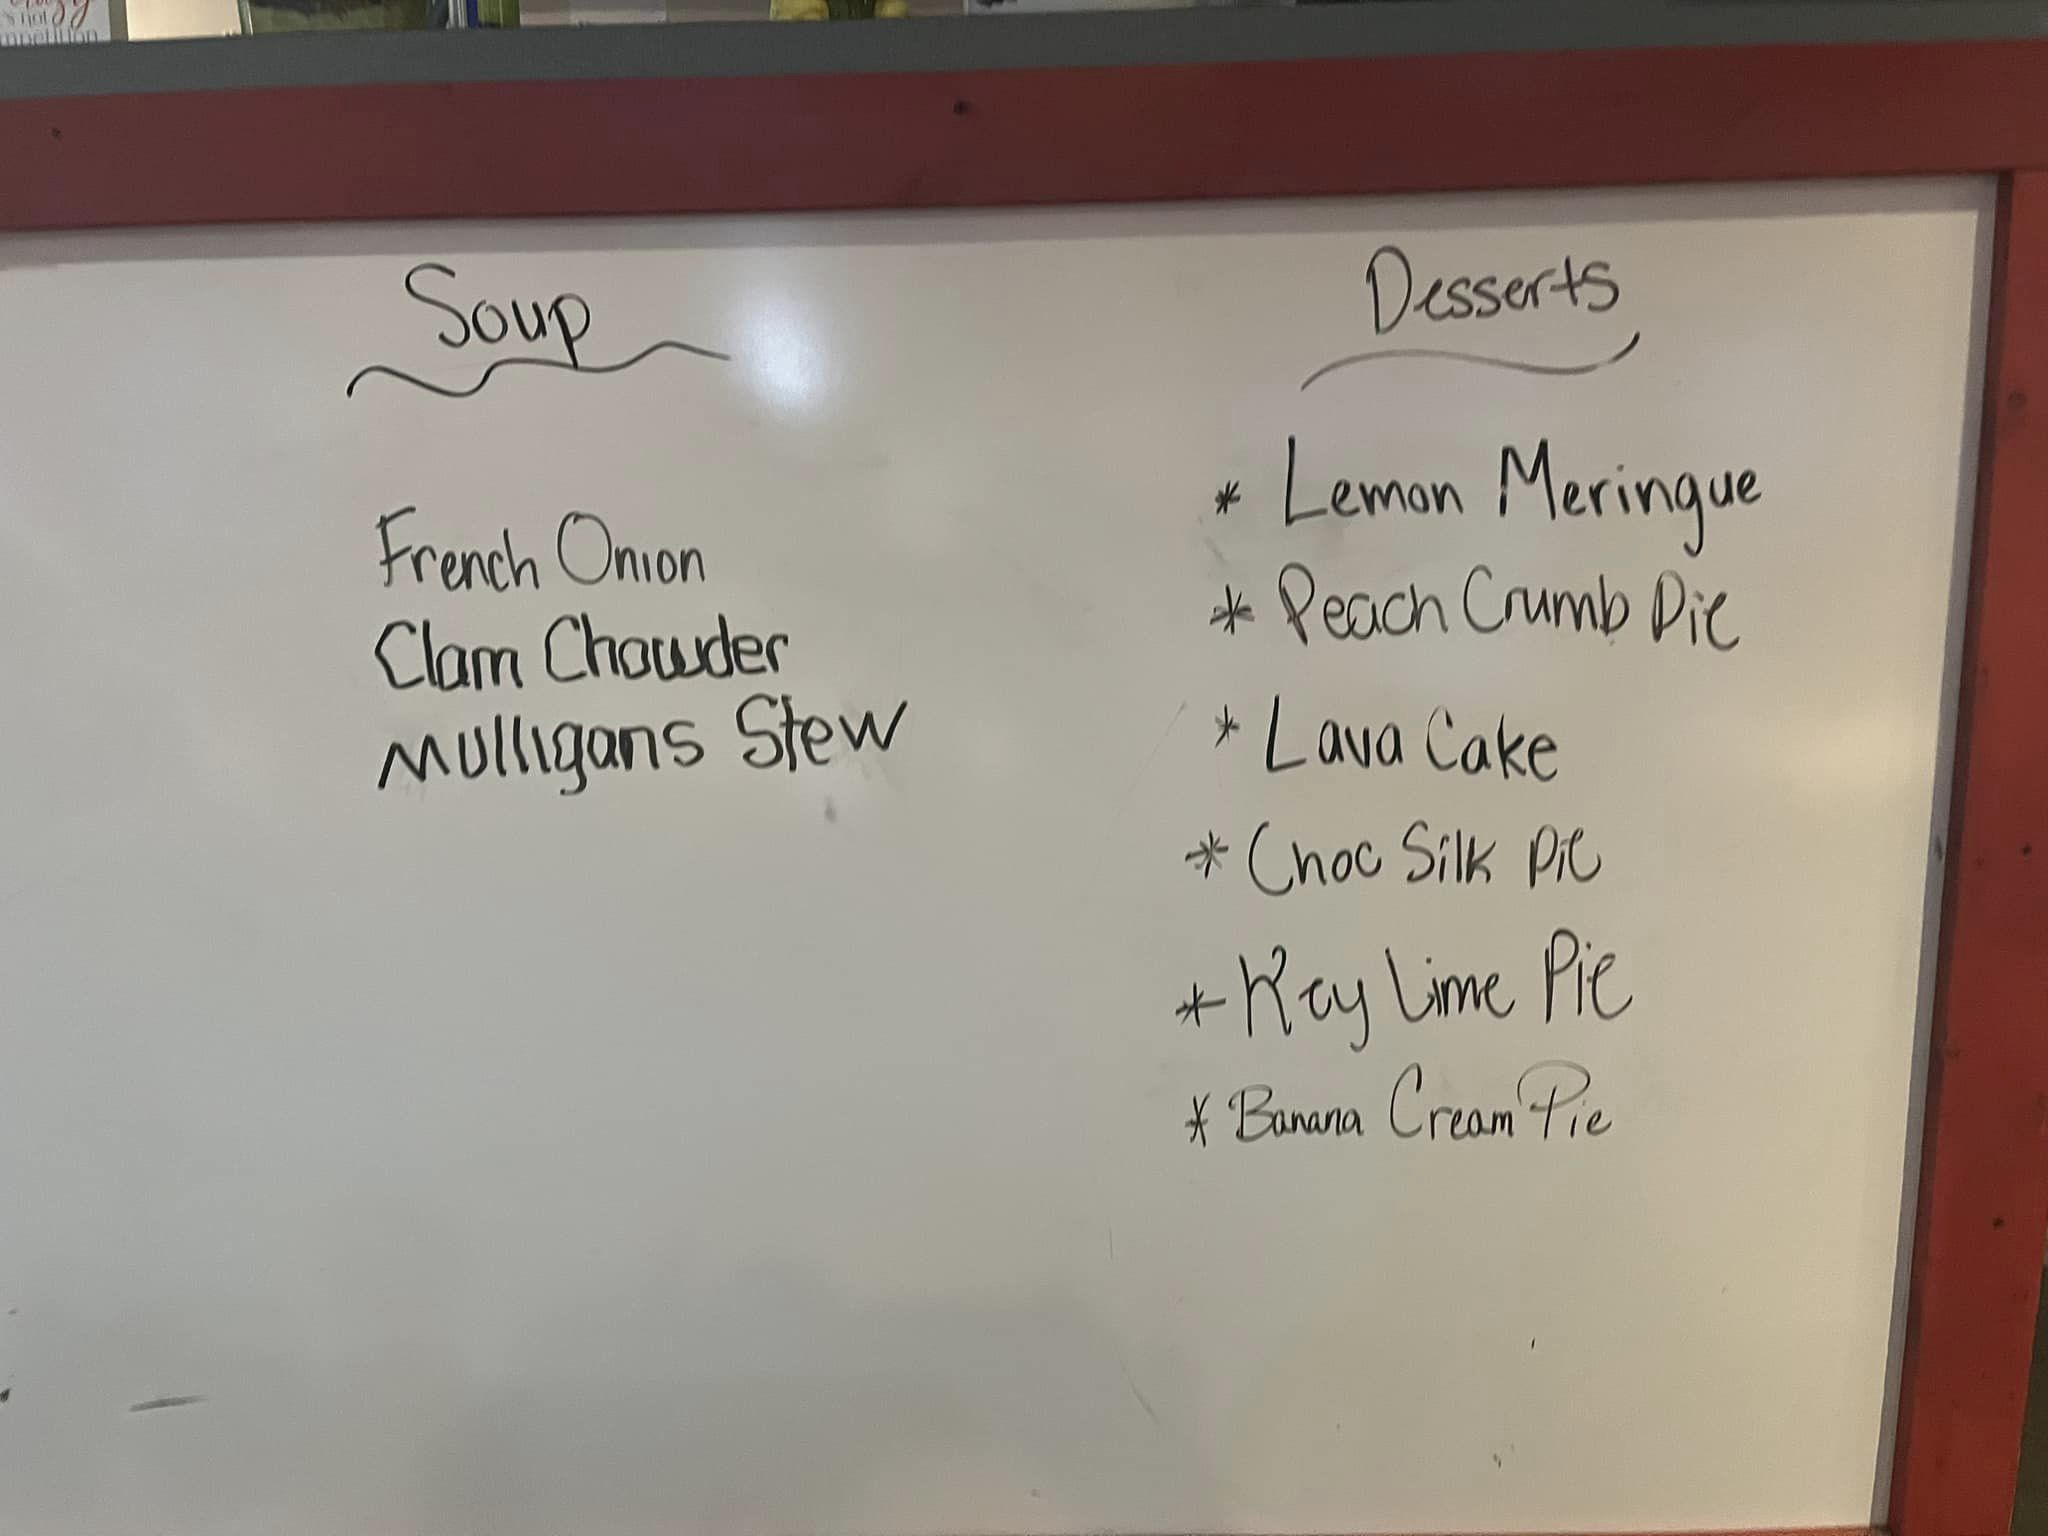 s not
mpetition
Soup
French Onion
Clam Chowder
Mulligans Stew
Desserts
* Lemon Meringue
* Peach Crumb Pie
* Lava Cake
* Choc Silk Pie
* Key Lime Pie
* Banana Cream Pie